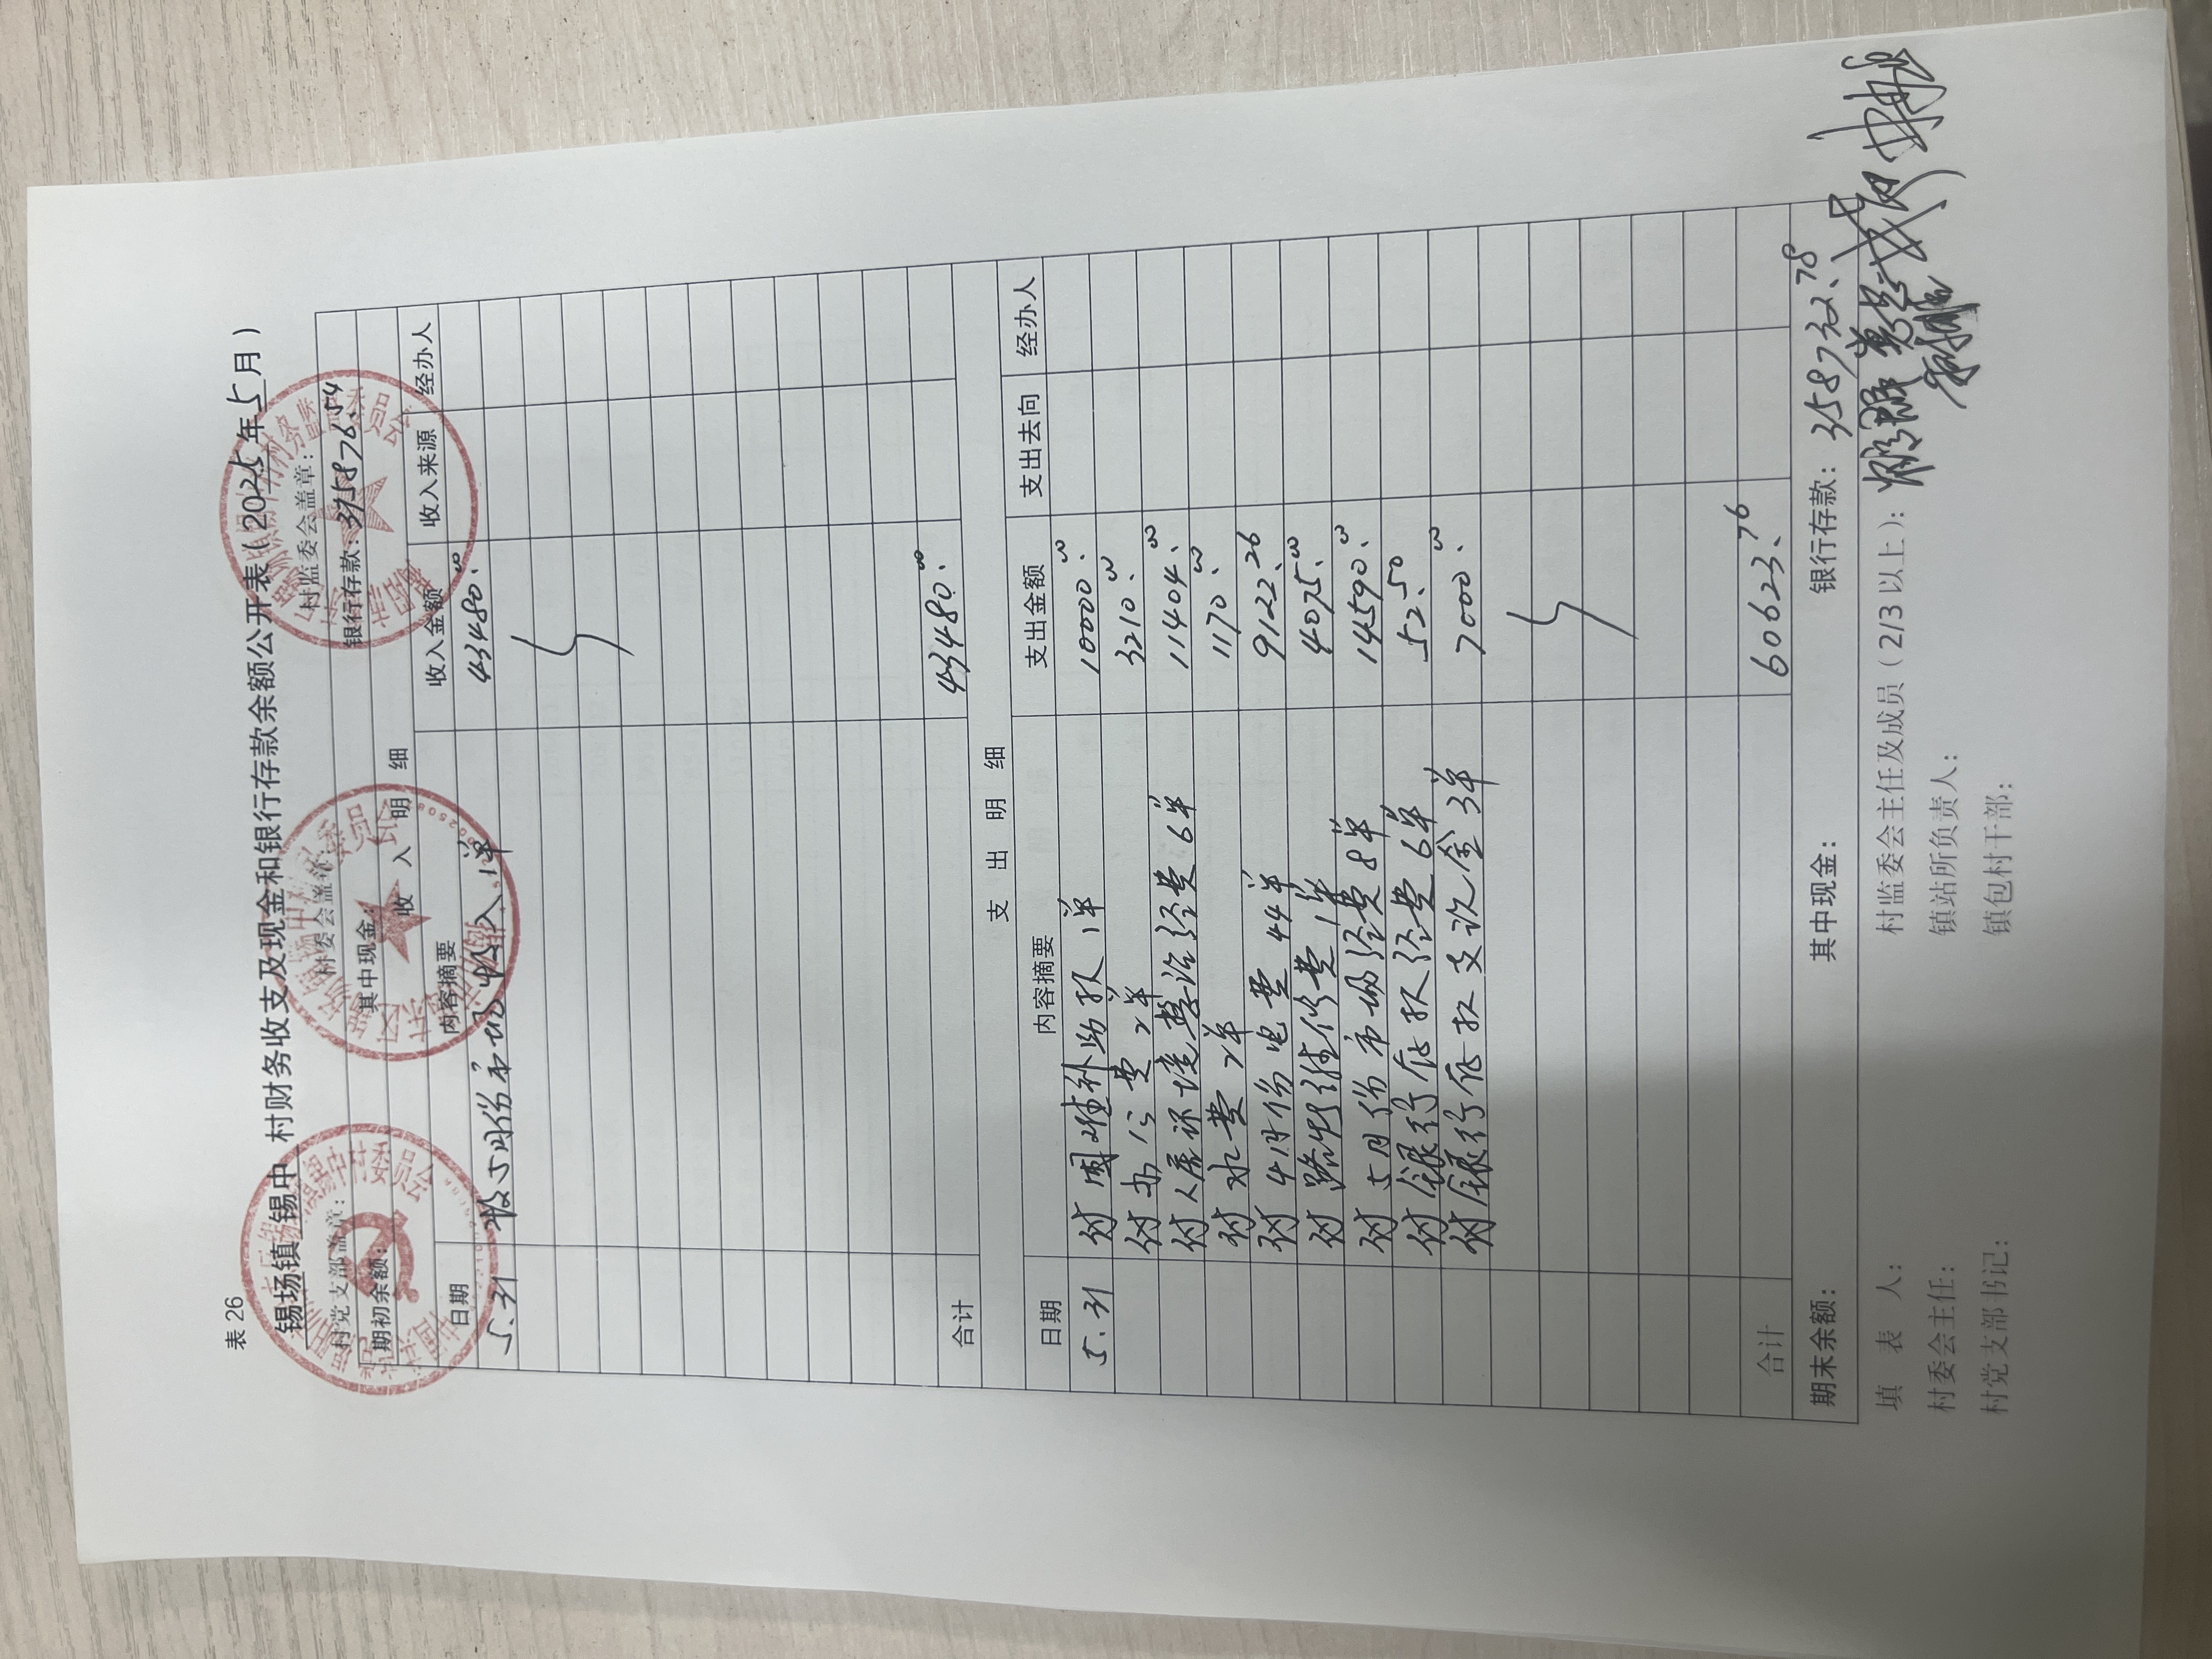 表 26
锡场镇 锡中 村财务收支及现金和银行存款余额公开表(2025年5月)
村党支部盖章: 村委会盖章: 村监委会盖章:
期初余额: 其中现金: 银行存款: 375876.54
收 入 明 细
日期 内容摘要 收入金额 收入来源 经办人
5.31 收5月份市场收入1单 43480.00
合计 43480.00
支 出 明 细
日期 内容摘要 支出金额 支出去向 经办人
5.31 付困难补助款1单 10000.00
付办公费2单 3210.00
付人居环境整治经费6单 11404.00
付水费2单 1170.00
付4月份电费44单 9122.26
付路灯维修费1单 4075.00
付5月份市场经费8单 14590.00
付银行代扣经费6单 52.50
付银行代扣支议金3单 7000.00
合计 60623.76
期末余额: 其中现金: 银行存款: 358732.78
填 表 人: 村监委会主任及成员(2/3以上):
村委会主任: 镇站所负责人:
村党支部书记: 镇包村干部: